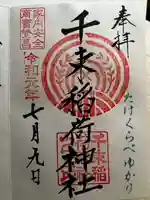 奉拝
たけくらべ ゆかり
千束稲荷神社
家内安全
商売繁昌
令和元年
七月九日
千束稲